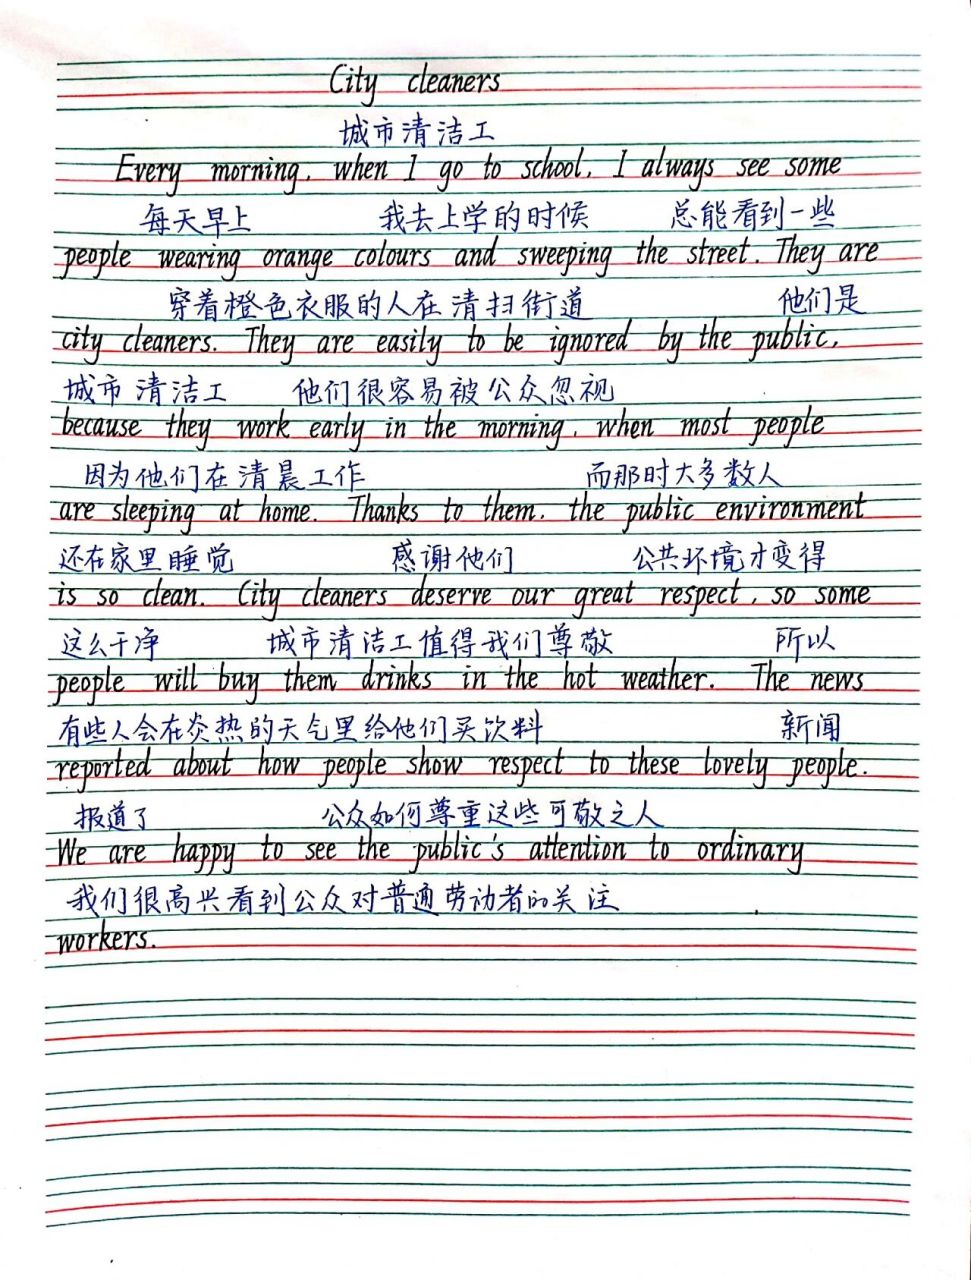 City cleaners
城市清洁工
Every morning, when I go to school, I always see some
每天早上 我去上学的时候 总能看到一些
people wearing orange colours and sweeping the street. They are
穿着橙色衣服的人在清扫街道 他们是
city cleaners. They are easily to be ignored by the public,
城市清洁工 他们很容易被公众忽视
because they work early in the morning, when most people
因为他们在清晨工作 而那时大多数人
are sleeping at home. Thanks to them, the public environment
还在家里睡觉 感谢他们 公共环境才变得
is so clean. City cleaners deserve our great respect, so some
这么干净 城市清洁工值得我们尊敬 所以
people will buy them drinks in the hot weather. The news
有些人会在炎热的天气里给他们买饮料 新闻
reported about how people show respect to these lovely people.
报道了 公众如何尊重这些可敬之人
We are happy to see the public's attention to ordinary
我们很高兴看到公众对普通劳动者的关注
workers.